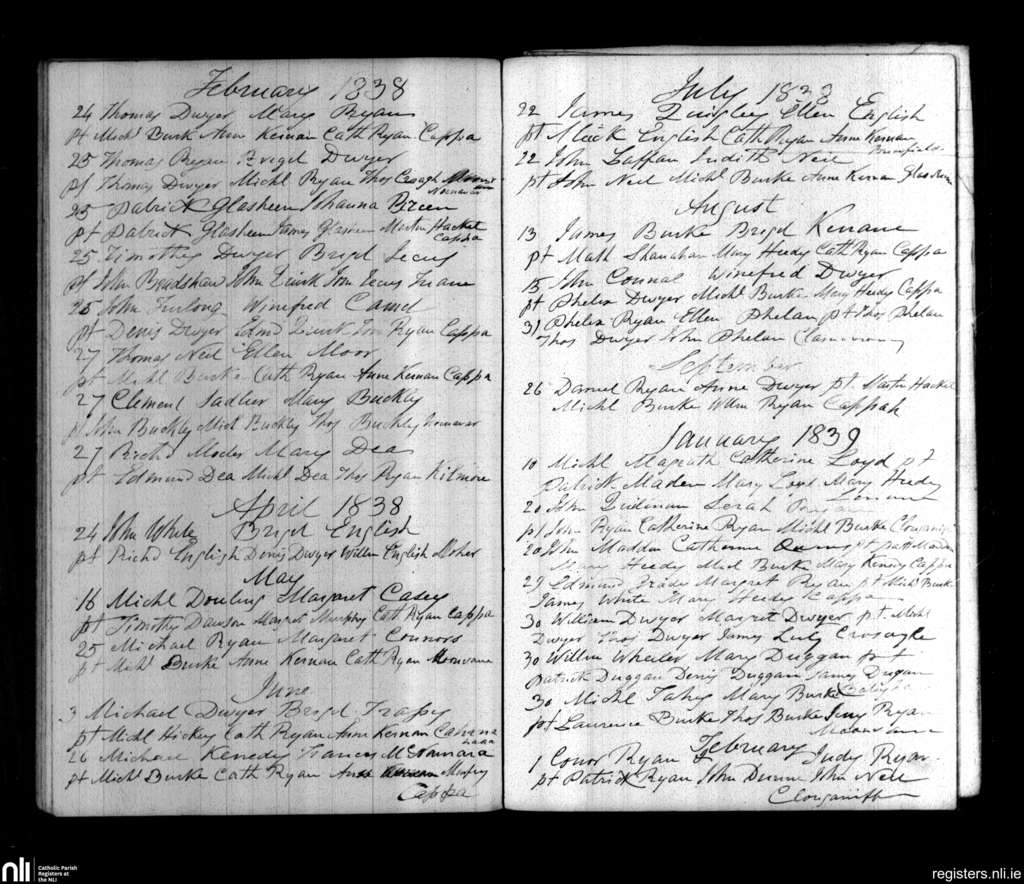 February 1838
24 Thomas Dwyer Mary Ryan
pt Michl Burke Ann Kernan Cath Ryan Cappa
25 Thomas Bryan Brigd Dwyer
pt Thomas Dwyer Michl Ryan Thos
25 Patrick Glasheen Johanna Breen
pt Patrick Glasheen James Glasheen Martin Hacket
Cappa
25 Timothy Dwyer Brigd
pt John Bradshaw John Quirk Tom
25 John Furlong Winefred
pt Denis Dwyer Edmd Quirk Tom Ryan Cappa
27 Thomas Neil Ellen Moor
pt Michl Burke Cath Ryan Anne Kernan Cappa
27 Clement Sadlier Mary Buckley
pt John Buckley Mich Buckley Thos Buckley
27 Richd Mary Dea
pt Edmund Dea Michl Dea Thos Ryan Kilmore
April 1838
24 John White Brigd English
pt Richd English Denis Dwyer Willm English
May
16 Michl Dowling Margaret
pt Timothy Dawson Margret Murphy Cath Ryan Cappa
25 Michael Ryan Margaret Connors
pt Michl Burke Anne Kernan Cath Ryan
June
3 Michael Dwyer Brigd
pt Michl Hickey Cath Ryan Anne Kernan
26 Michael Kenedy Frances McNamara
pt Michl Burke Cath Ryan
Cappa
July 1838
22 James Quigley Ellen English
pt Mack English Cath Ryan Anne Kernan
22 John Laffan Judith Neil
pt John Neil Michl Burke Anne Kernan
August
13 James Burke Brigd Kenane
pt Math Shanahan Mary Heedy Cath Ryan Cappa
15 John Connal Winefred Dwyer
pt Phelix Dwyer Michl Burke Mary Heedy Cappa
31 Phelix Ryan Ellen Phelan pt Thos Phelan
Thos Dwyer John Phelan
September
26 Daniel Ryan Anne Dwyer pt Martin Hacket
Michl Burke Willm Ryan Cappah
January 1839
10 Michl Magrath Catherine Loyd pt
Patrick Maden Mary Loyd Mary Heedy
20 John
pt John Ryan Catherine Ryan Michl Burke
20 John Madden Catherine
Mary Heedy Michl Burke Mary Kenedy Cappa
29 Edmund Grady Margret Ryan pt Michl Burke
James White Mary Heedy Cappa
30 William Dwyer Margret Dwyer pt Michl
Dwyer Thos Dwyer James
30 Willm Wheeler Mary Duggan pt
Patrick Duggan Denis Duggan James Duggan
30 Michl Fahy Mary Burke
pt Laurence Burke Thos Burke Ryan
February
1 Conor Ryan Judy Ryan
pt Patrick Ryan John Dunne John Neil
nli Catholic Parish
Registers at
the NLI
registers.nli.ie